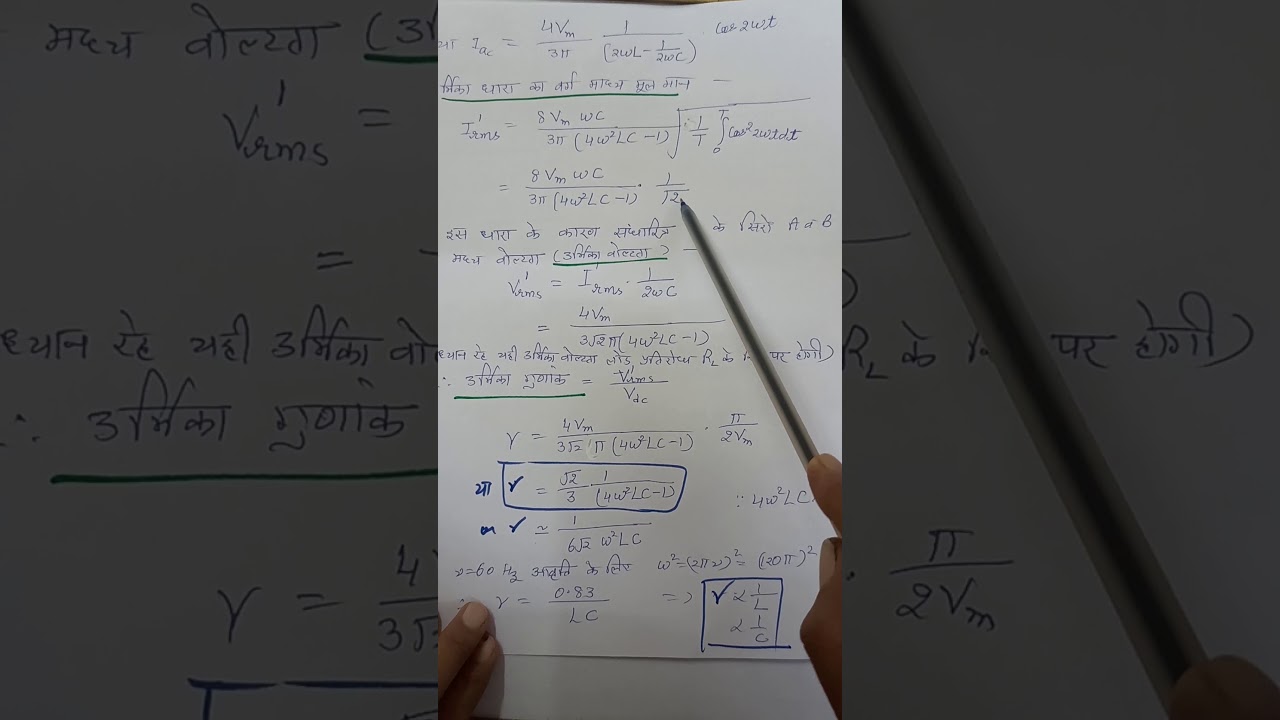 या I_ac = 4Vm/3π · 1/(2ωL − 1/2ωC) · Cos 2ωt
र्मिका धारा का वर्ग माध्य मूल मान —
I'rms = 8Vm ωC/3π(4ω²LC−1) √(1/T ∫₀ᵀ Cos² 2ωt dt)
= 8Vm ωC/3π(4ω²LC−1) · 1/√2
इस धारा के कारण संधारित्र के सिरों A व B
मध्य वोल्टता (उर्मिका वोल्टता) —
V'rms = I'rms · 1/2ωC
= 4Vm/3√2π(4ω²LC−1)
ध्यान रहे यही उर्मिका वोल्टता लोड प्रतिरोध R_L के पर होगी)
∴ उर्मिका गुणांक = V'rms/Vdc
γ = 4Vm/3√2 π(4ω²LC−1) · π/2Vm
या γ = √2/3 · 1/(4ω²LC−1) ∵ 4ω²LC
or γ ≃ 1/6√2 ω²LC
ν=60 Hz आवृत्ति के लिए ω²=(2πν)²=(120π)²
∴ γ = 0.83/LC => γ ∝ 1/L
∝ 1/C